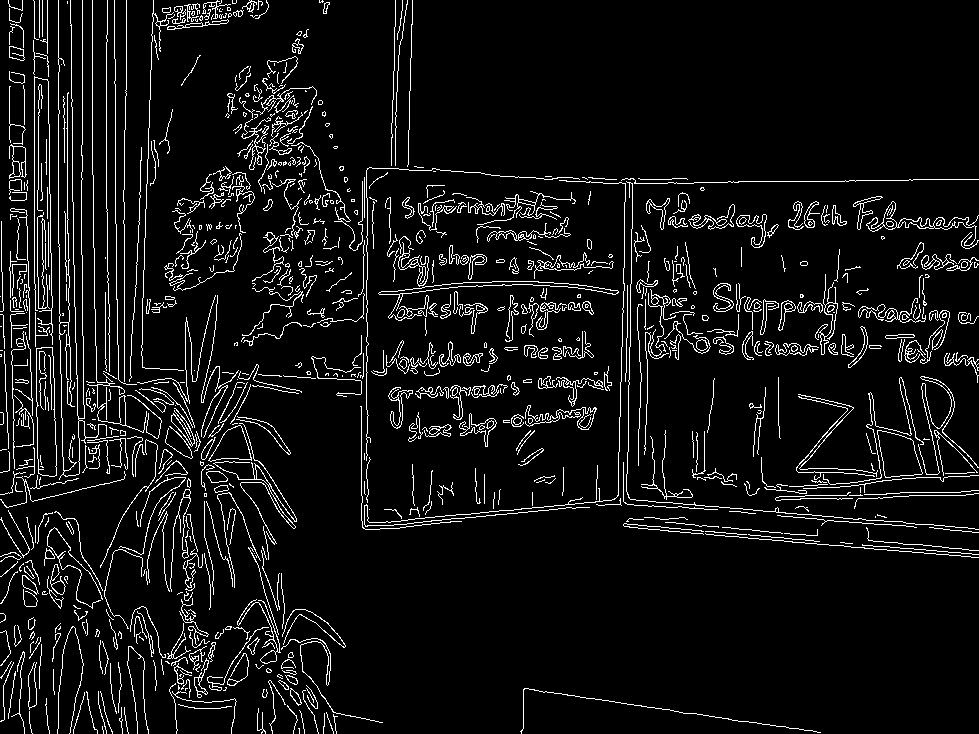 supermarket
market
toy shop -
bookshop - księgarnia
butcher's - rzeźnik
greengrocer's - warzywniak
shoe shop - obuwniczy
Tuesday, 26th February
lesson
Topic: Shopping - reading an
03 (czwartek) - Test
ZHR